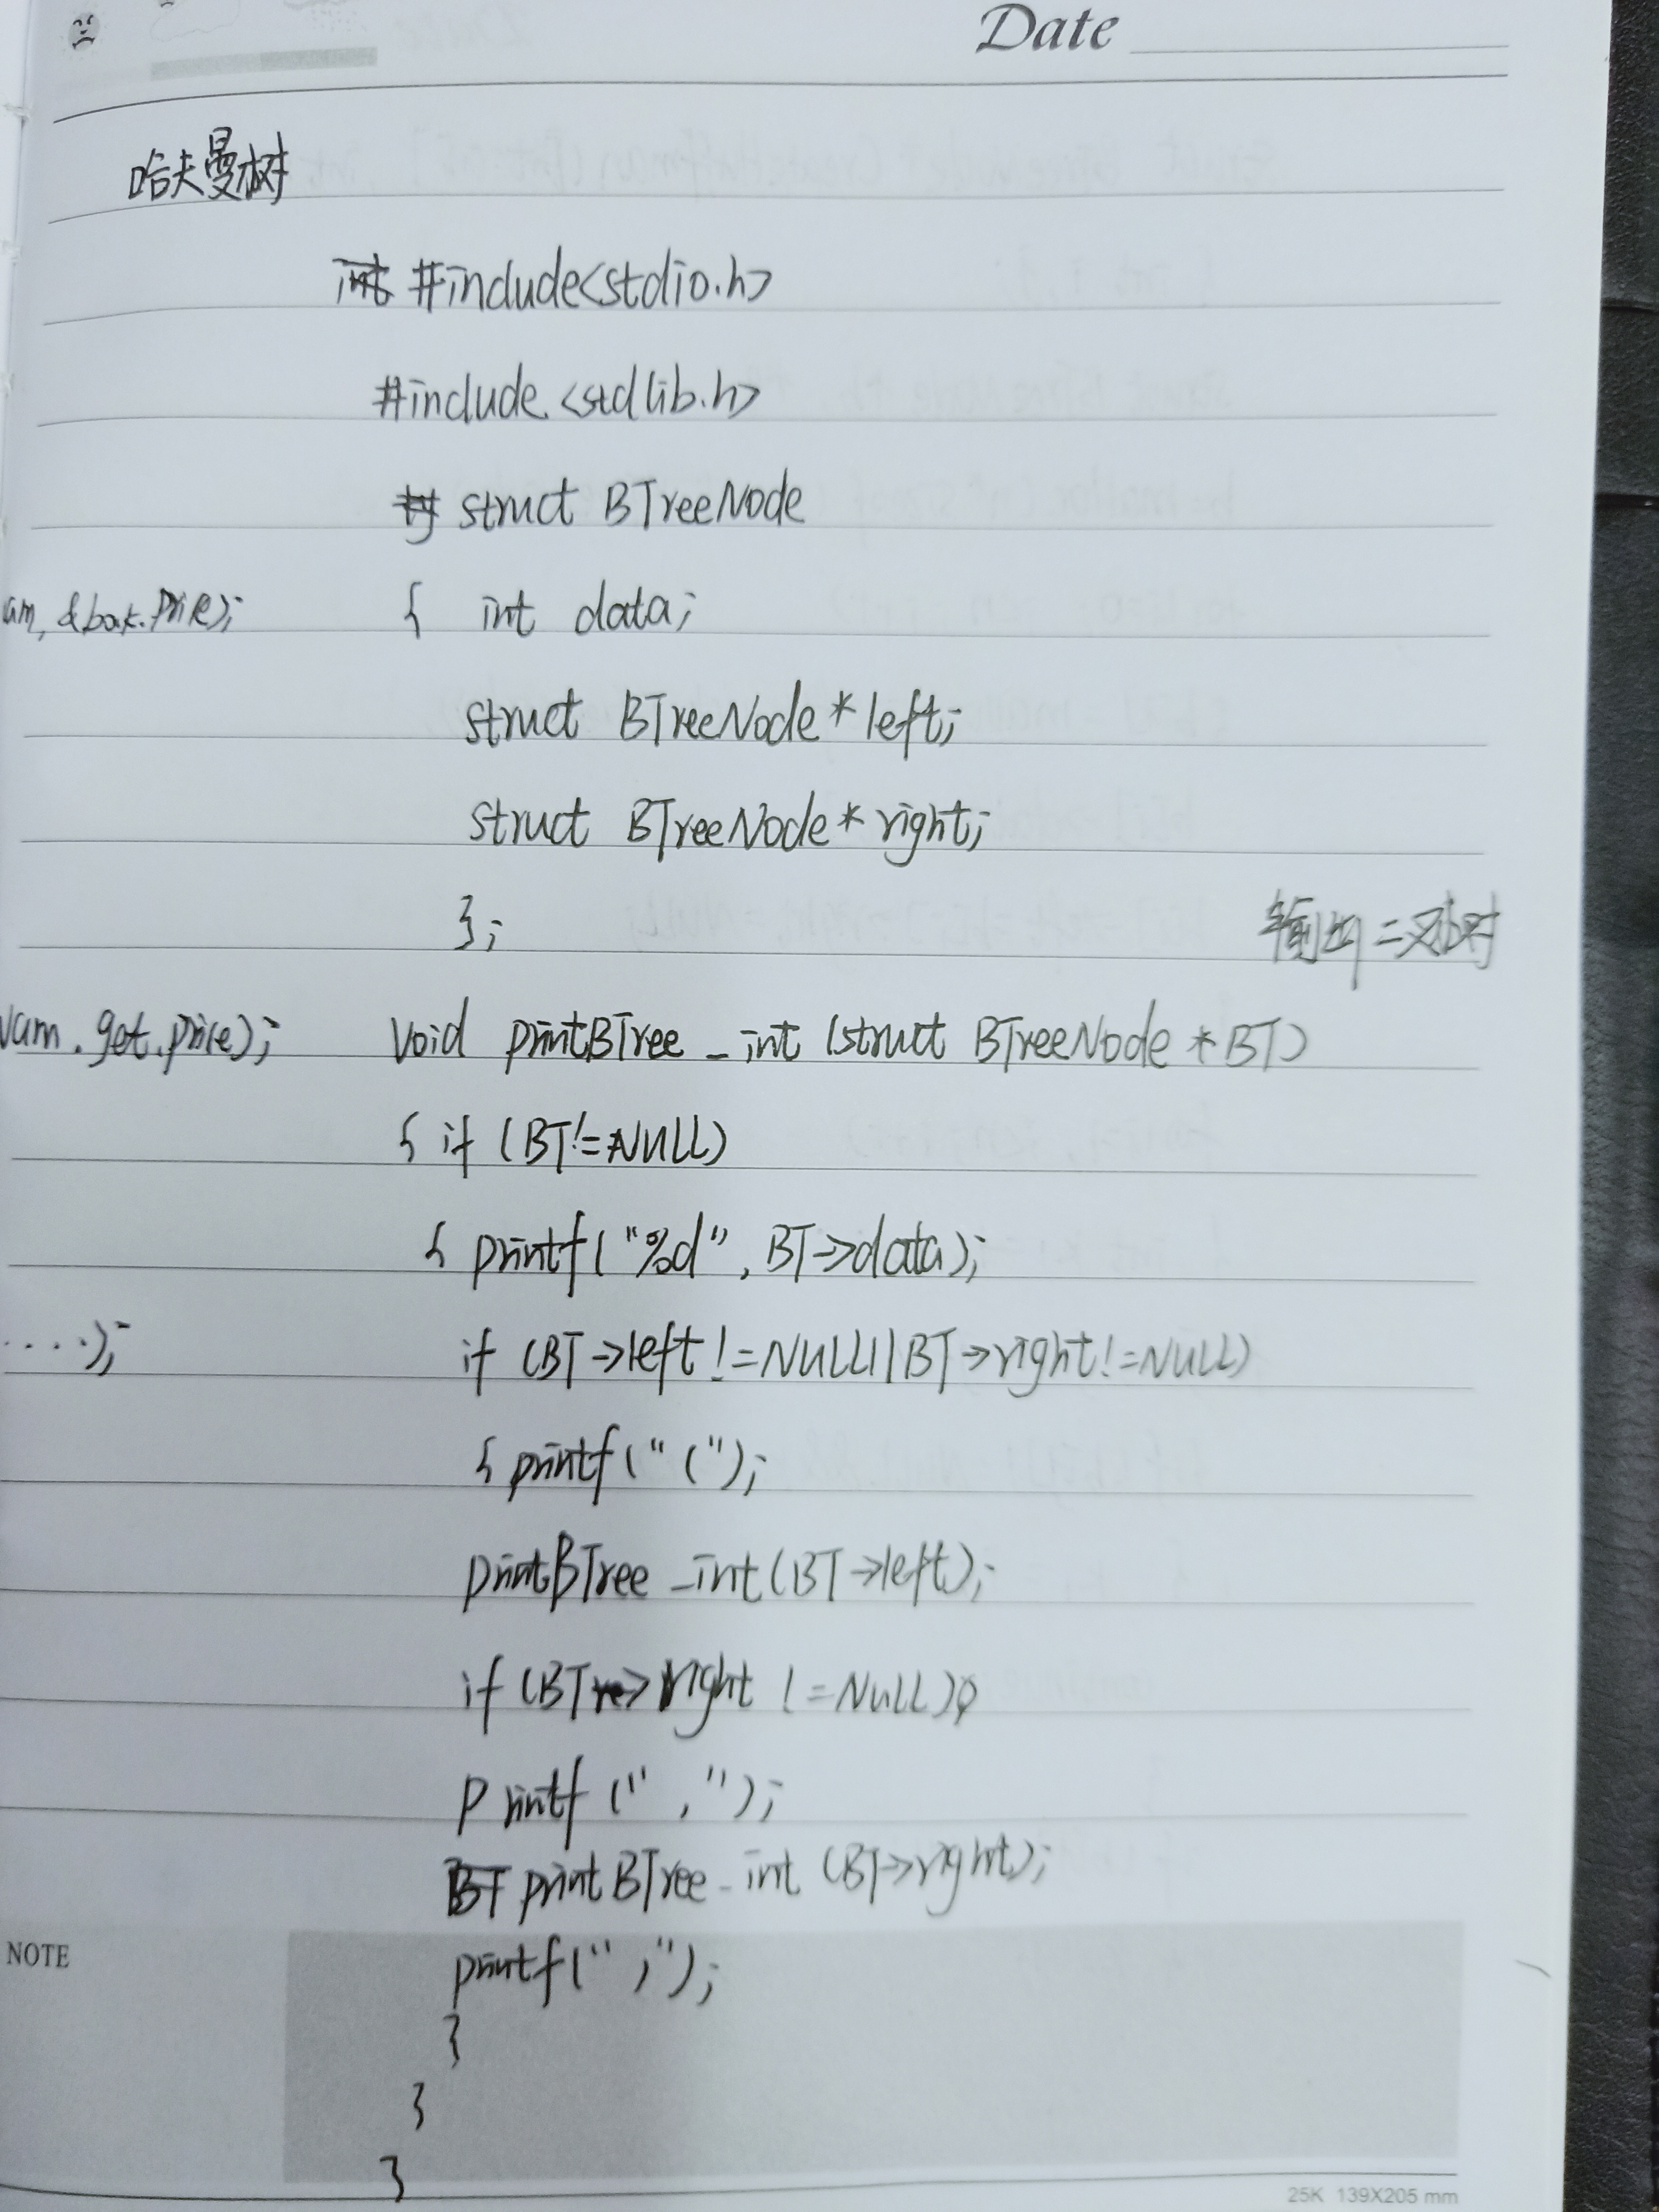 Date
哈夫曼树
#include<stdio.h>
#include<stdlib.h>
struct BTreeNode
{ int data;
struct BTreeNode*left;
struct BTreeNode*right;
};
输出二叉树
void printBTree_int (struct BTreeNode *BT)
{ if (BT!=NULL)
{ printf("%d", BT->data);
if (BT->left!=NULL||BT->right!=NULL)
{ printf("(");
printBTree_int(BT->left);
if (BT->right !=NULL)
printf (",");
printBTree_int (BT->right);
printf(";");
}
}
}
.get.price);
....);
NOTE
25K 139X205 mm